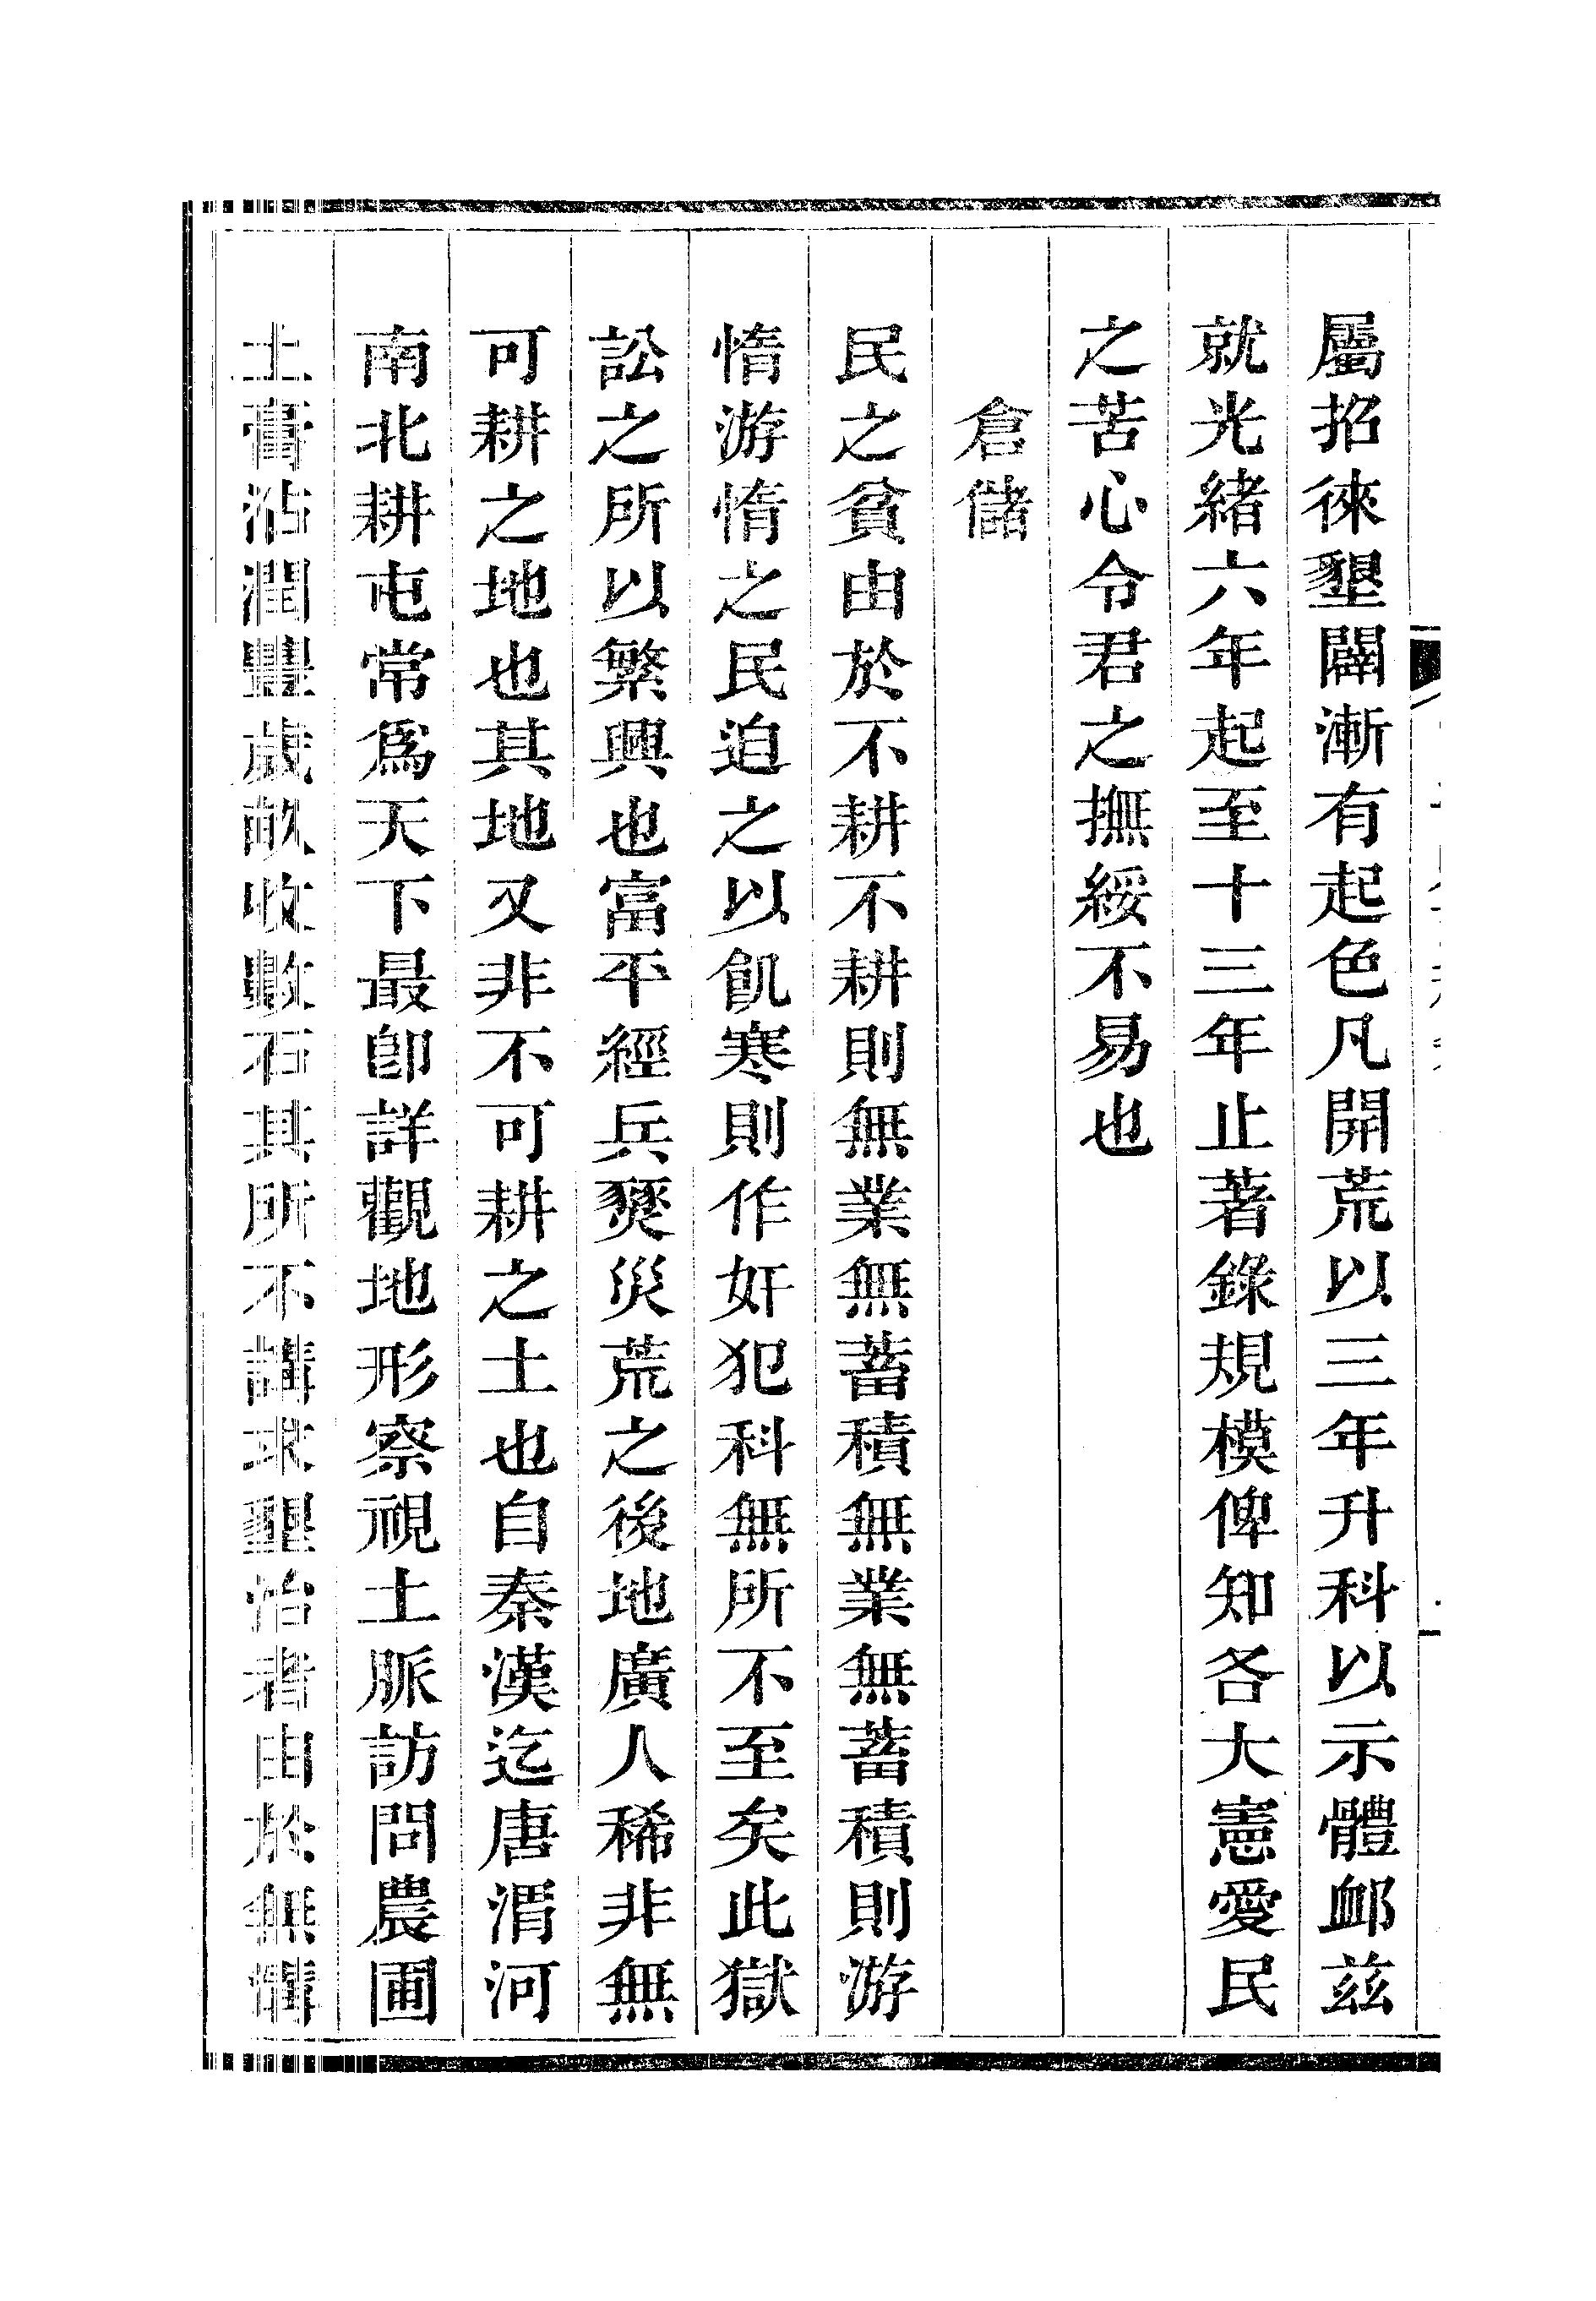 屬招徠墾闢漸有起色凡開荒以三年升科以示體卹茲
就光緒六年起至十三年止著錄規模俾知各大憲愛民
之苦心令君之撫綏不易也
倉儲
民之貧由於不耕不耕則無業無蓄積無業無蓄積則游
惰游惰之民迫之以飢寒則作奸犯科無所不至矣此獄
訟之所以繁興也富平經兵燹災荒之後地廣人稀非無
可耕之地也其地又非不可耕之土也自秦漢迄唐渭河
南北耕屯常為天下最卽詳觀地形察視土脈訪問農圃
土膏沾潤豐歲畝收數石其所不講求墾治者由於無溝